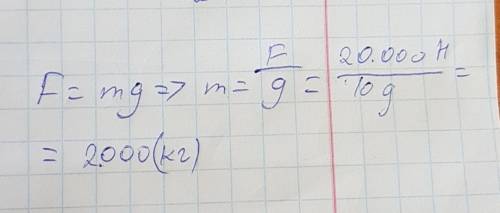 F = mg => m = F/g = 20.000 H/10 g =
= 2000(кг)